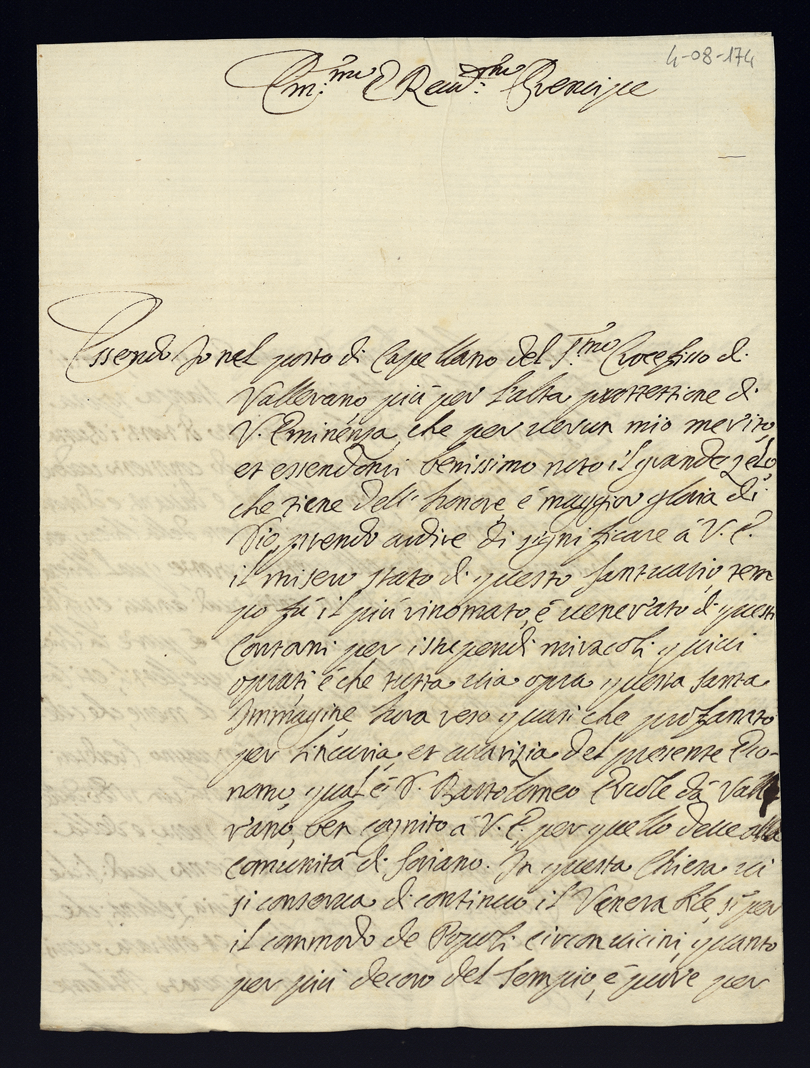 4-08-174
Em:mo E Reud:mo Prencipe
Essendo Io nel posto di Capellano del S.mo Crocefisso di
Vallerano più per l'alta prottettione di
V. Eminenza, che per uerun mio merito,
et essendomi benissimo noto il grande zelo,
che tiene dell'honore, é maggior gloria di
Dio, prendo ardire di significare á V. E.
il misero stato di questo Santuario, tem
po fú il più rinomato, é uenerato di questi
Contorni per i stupendi miracoli quiui
oprati é che tutta uia opra questa Santa
Immagine hora reso quasi che profanato
per l'incuria, et auarizia del presente Eco-
nomo qual'é D. Bartolomeo Ercole da Valle
rano, ben cognito a V. E. per quello deue alla
comunità di Soriano. In questa Chiesa ui
si conserua di continuo il Venerabile, sì per
il commodo de Popoli circonuicini, quanto
per più decoro del Tempio, é pure per